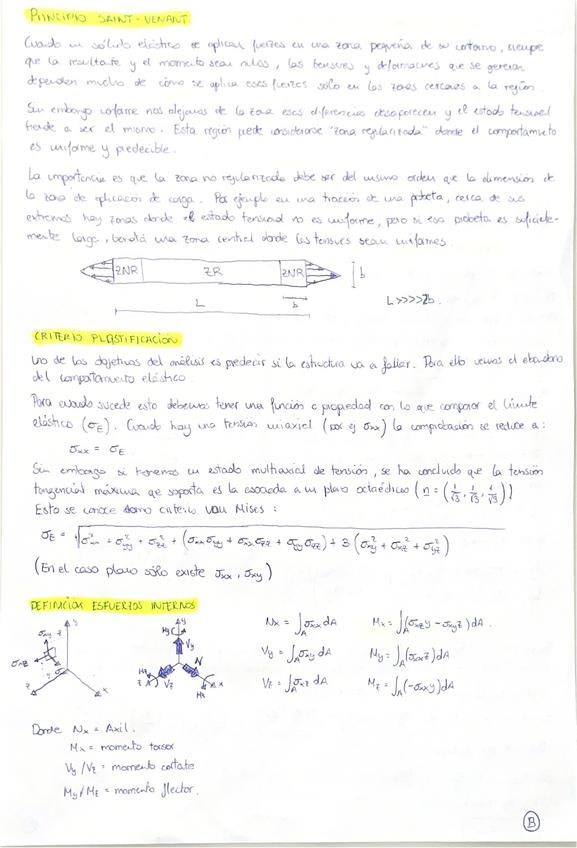 PRINCIPIO SAINT-VENANT
Cuando en sólido elástico se aplican fuerzas en una zona pequeña de su contorno, siempre
que la resultante y el momento sean nulos, las tensiones y deformaciones que se generan
dependen mucho de cómo se aplica esas fuerzas solo en las zonas cercanas a la región.
Sin embargo conforme nos alejamos de la zona esas diferencias desaparecen y el estado tensional
tiende a ser el mismo. Esta región puede considerarse "zona regularizada" donde el comportamiento
es uniforme y predecible.
La importancia es que la zona no regularizada debe ser del mismo orden que la dimensión de
la zona de aplicación de carga. Por ejemplo en una tracción de una probeta, cerca de sus
extremos hay zonas donde el estado tensional no es uniforme, pero si esa probeta es suficiente-
mente larga, tendrá una zona central donde las tensiones sean uniformes.
ZNR ZR ZNR b
L b L >>>> 2b.
CRITERIO PLASTIFICACIÓN
Uno de los objetivos del análisis es predecir si la estructura va a fallar. Para ello vemos el abandono
del comportamiento elástico.
Para cuando sucede esto debemos tener una función o propiedad con lo que comparar el límite
elástico (σE). Cuando hay una tensión uniaxial (por ej σxx) la comprobación se reduce a:
σxx = σE
Sin embargo si tenemos un estado multiaxial de tensión, se ha concluido que la tensión
tangencial máxima que soporta es la asociada a un plano octaédrico (n = (1/√3, 1/√3, 1/√3))
Esto se conoce como criterio von Mises:
σE = √σxx² + σyy² + σzz² + (σxxσyy + σxxσzz + σyyσzz) + 3 (σxy² + σxz² + σyz²)
(En el caso plano sólo existe σxx, σxy)
DEFINICIÓN ESFUERZOS INTERNOS
Nx = ∫A σxx dA Mx = ∫A (σxz y − σxy z) dA.
Vy = ∫A σxy dA My = ∫A (σxx z) dA
Vz = ∫A σxz dA Mz = ∫A (−σxx y) dA
σxy z y σxz z x
y My Vy N Mz z Vz Mx x
Donde Nx = Axil.
Mx = momento torsor
Vy /Vz = momento cortante
My/Mz = momento flector.
B